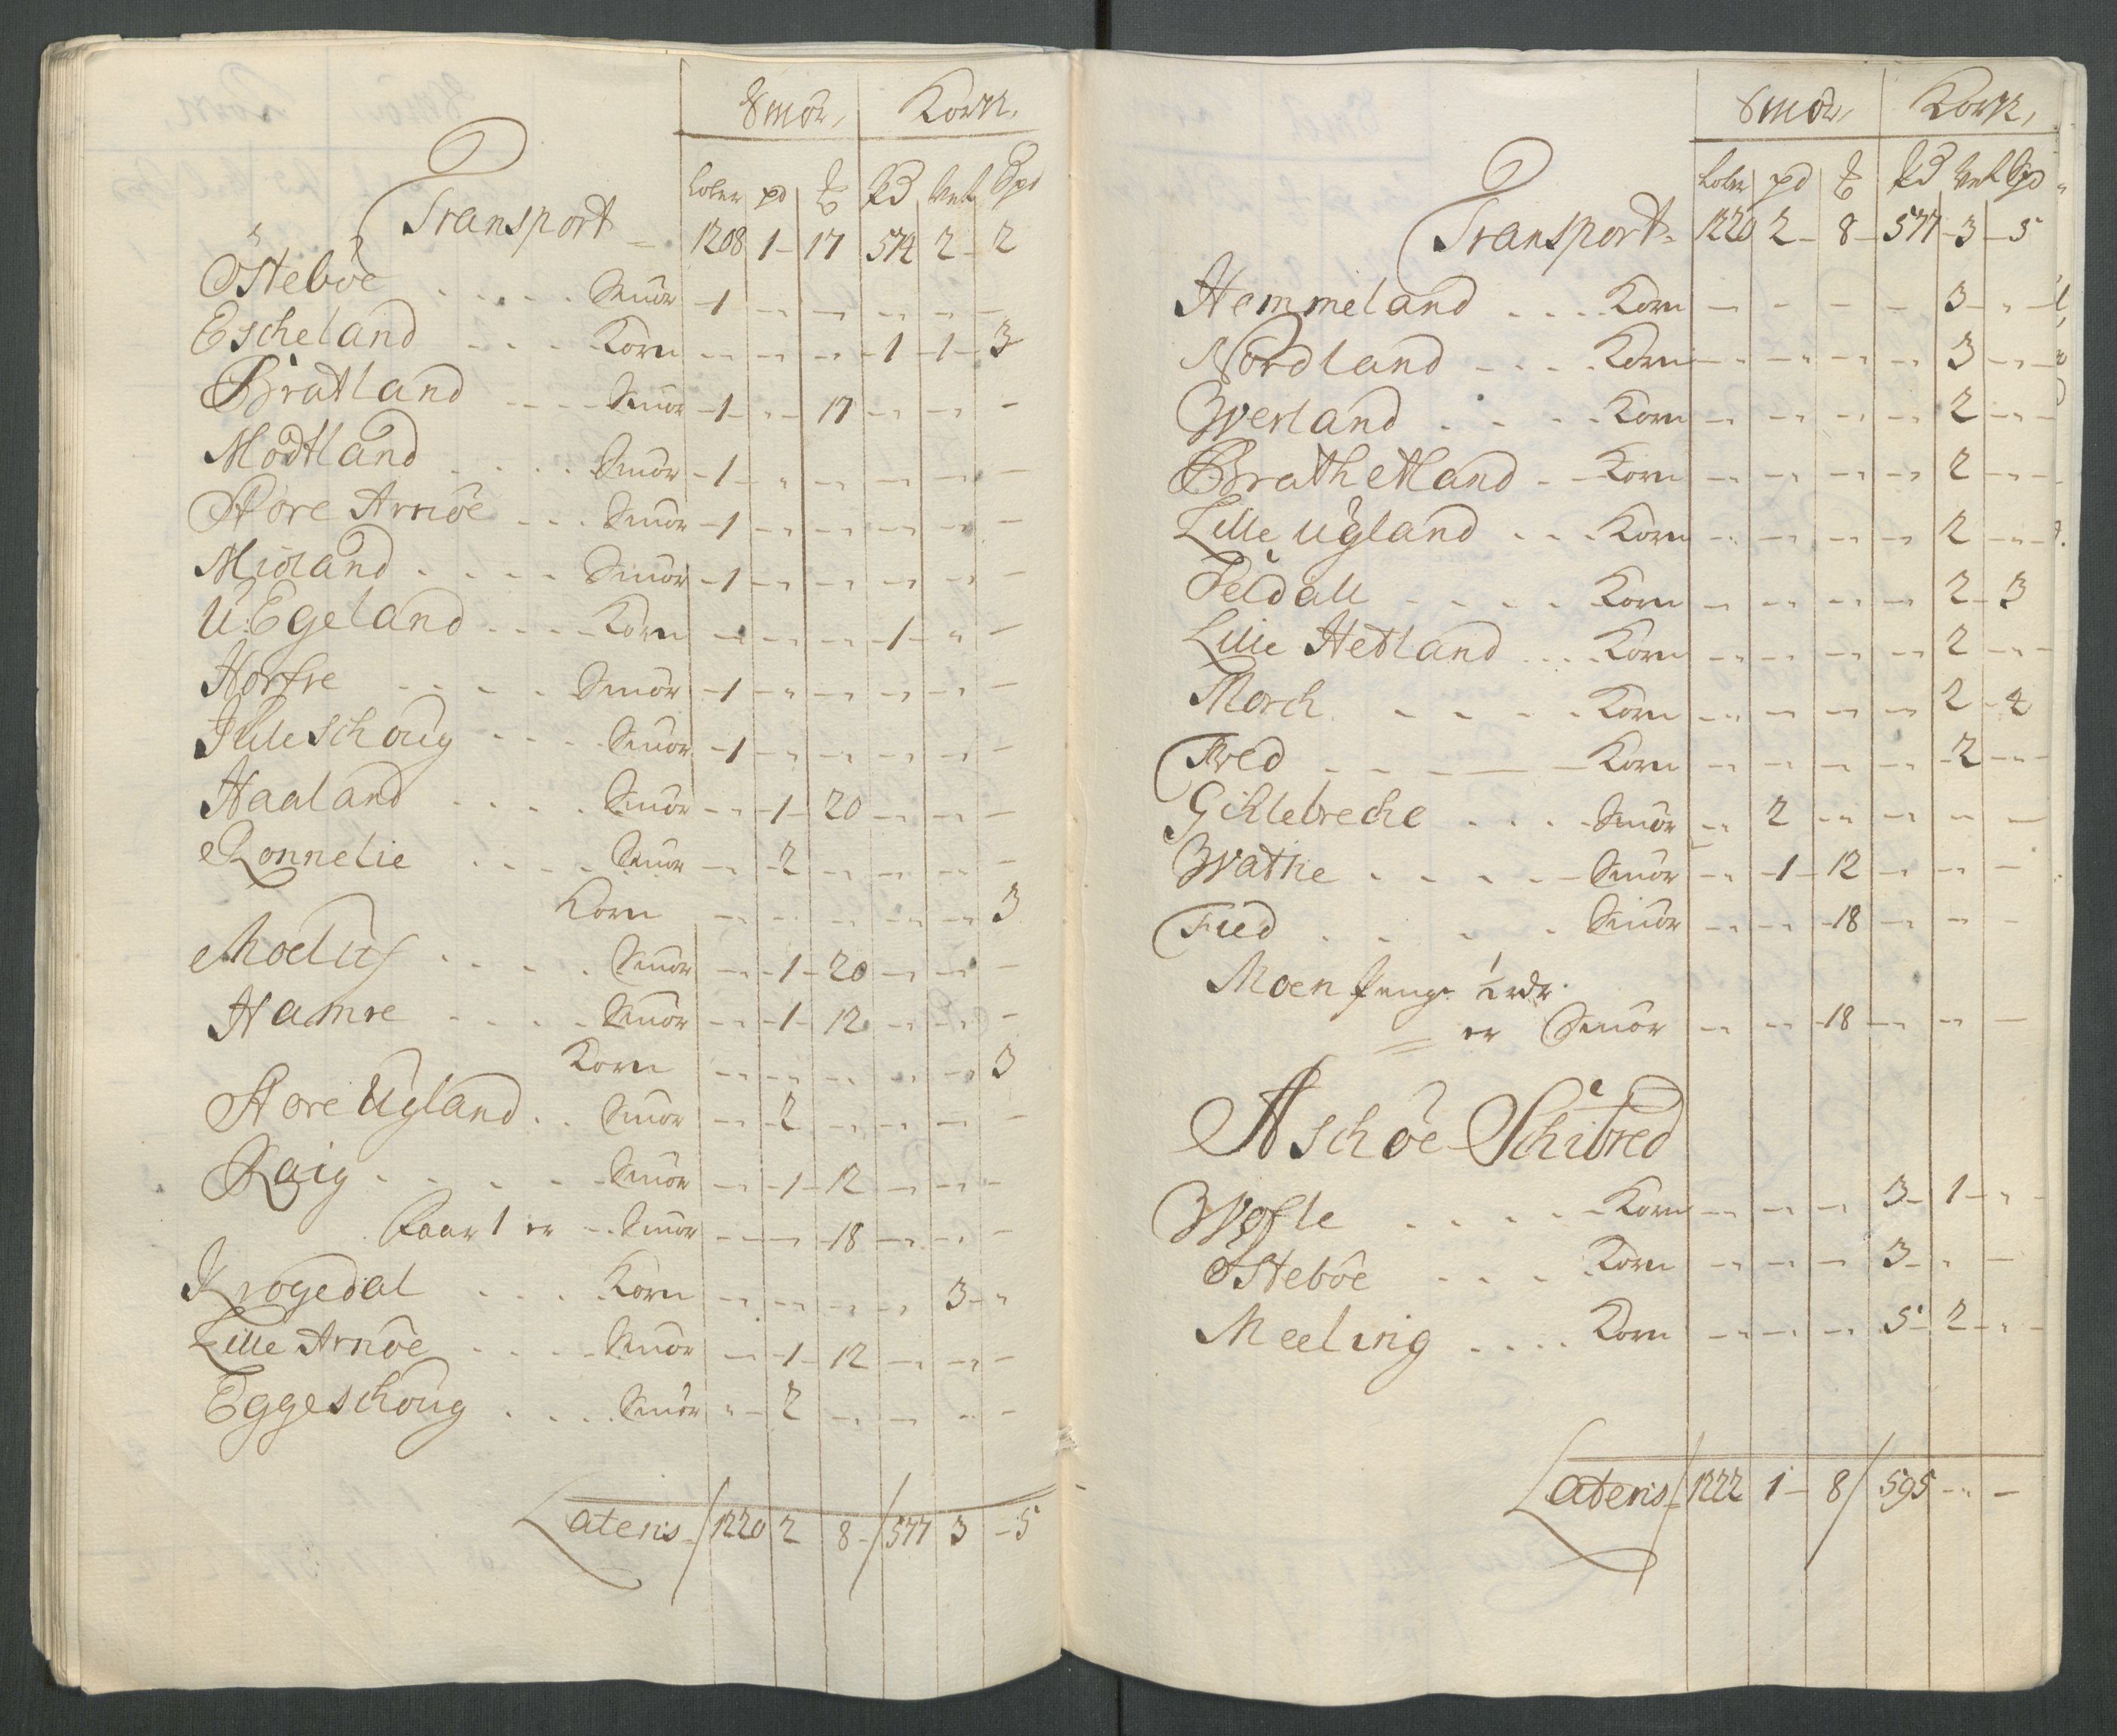 Smör, Korn,
Löber pd ℔ ƚƀ Vet Spd
Transport 1208 1 - 17 574 2 - 2
Östeböe . . . . . Smör - 1 - - - - -
Escheland . . . Korn - - - 1 - 1 - 3
Bratland . . . Smör - 1 - „ - 17 - - -
Mödtland . . . . Smör - 1 - - - - -
Store Arnöe . . . Smör - 1 - - - - -
Midland . . . . Smör - 1 - - - - -
U: Egeland . . . . Korn - - - - 1 - „ -
Hortre . . . . Smör - 1 - - - - -
Ildleschoug . . . . Smör - 1 - - - - -
Haaland . . . . Smör - - 1 - 20 - - -
Ronnelie . . . . Smör - - 2 - - - -
Korn - - - - - - 3
Moeluf . . . . . Smör - - 1 - 20 - - -
Hamre . . . . . Smör - - 1 - 12 - - -
Korn - - - - - - 3
Store Ugland . . Smör - - 2 - - - -
Raig . . . . . Smör - - 1 - 12 - - -
Faar 1 er - Smör - - 18 - - -
Krogedal . . . . Korn - - - - 3 - „
Lille Arnöe . . . . Smör - - 1 - 12 - - -
Eggeschoug . . . . Smör „ - 2 - - - -
Lateris / 1220 2 8 / 577 3 - 5
Smör, Korn,
Löber pd ℔ ƚƀ Vet Spd
Transport 1220 2 - 8 - 577 - 3 - 5
Hemmeland . . . . Korn - - - - 3 - „ -
Nordland - . . . Korn - - - - 3 - „ -
Werland . . . . Korn - - - - 2 - -
Brathetland - - Korn - - - - 2 - - -
Lille Ugland . . . Korn - - - - 2 - - -
Feldall . . . . Korn - - - - 2 - 3
Lille Hetland . . . . Korn - - - - 2 - - -
Morch . . . . Korn - - - - 2 - 4
Tved - - - - Korn - - - - 2 - - -
Gichlebreche . . . . Smör - 2 - - - - -
Wathe . . . . . Smör - - 1 - 12 - - -
Tied . . . . Smör - - - 18 - - -
Moen penge ½ rdr.
er Smör - - - 18 - - -
Aschöe Schibred
Wofle . . . . Korn - - - 3 - 1 - „ -
Östeböe . . . . Korn - - - 3 - „ -
Meeling . . . . Korn - - - 5 - 2 - „ -
Lateris / 1222 1 - 8 / 595 - „ -